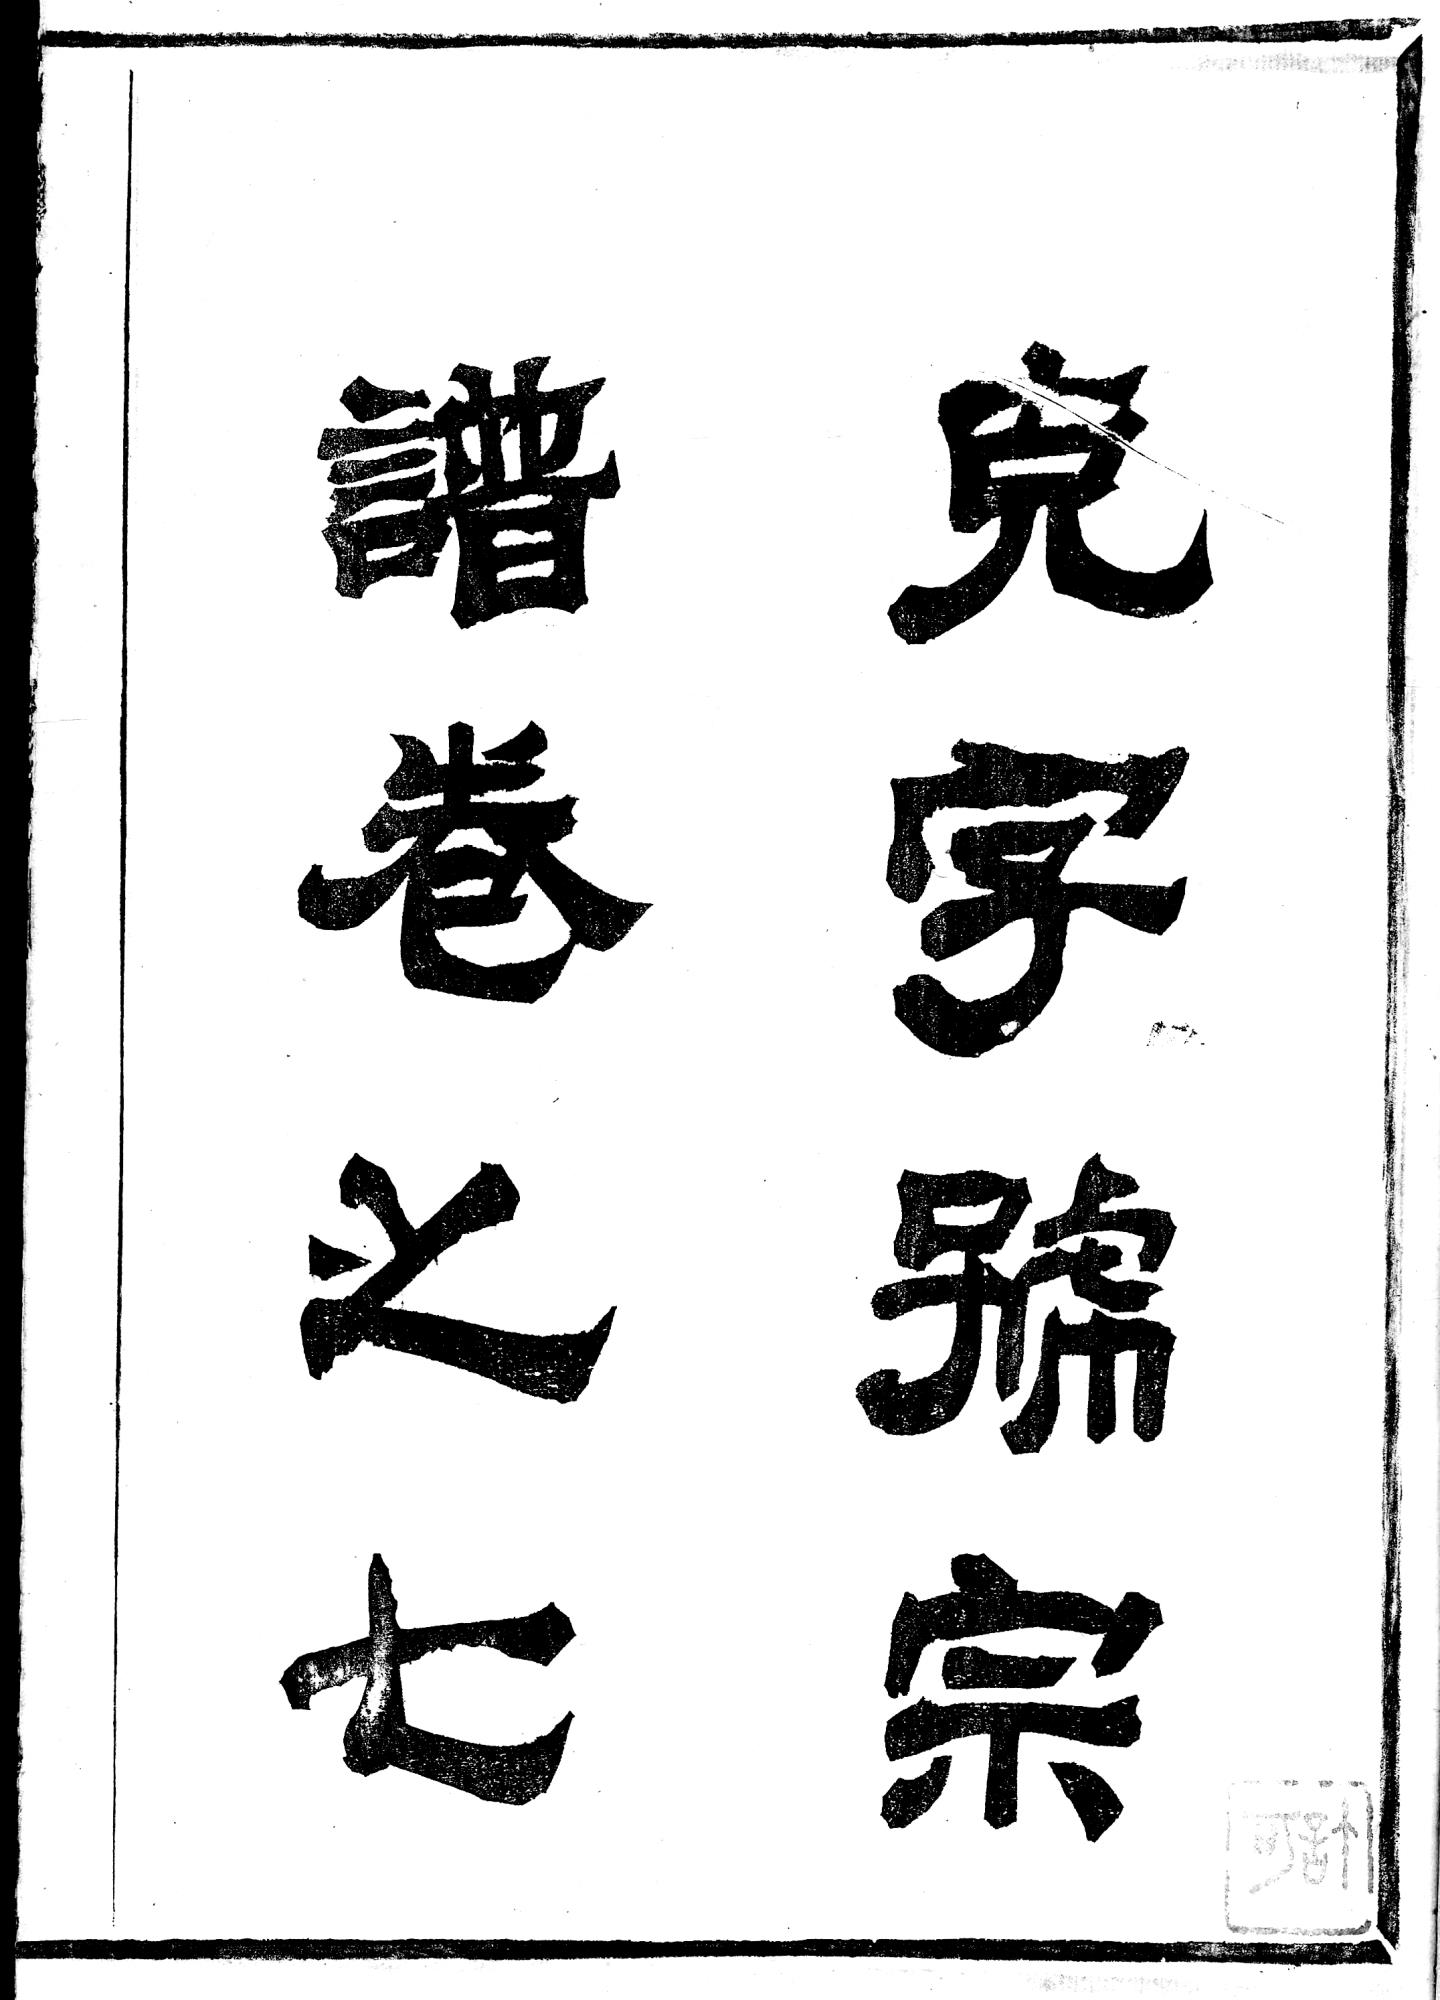 克字號宗
譜卷之七